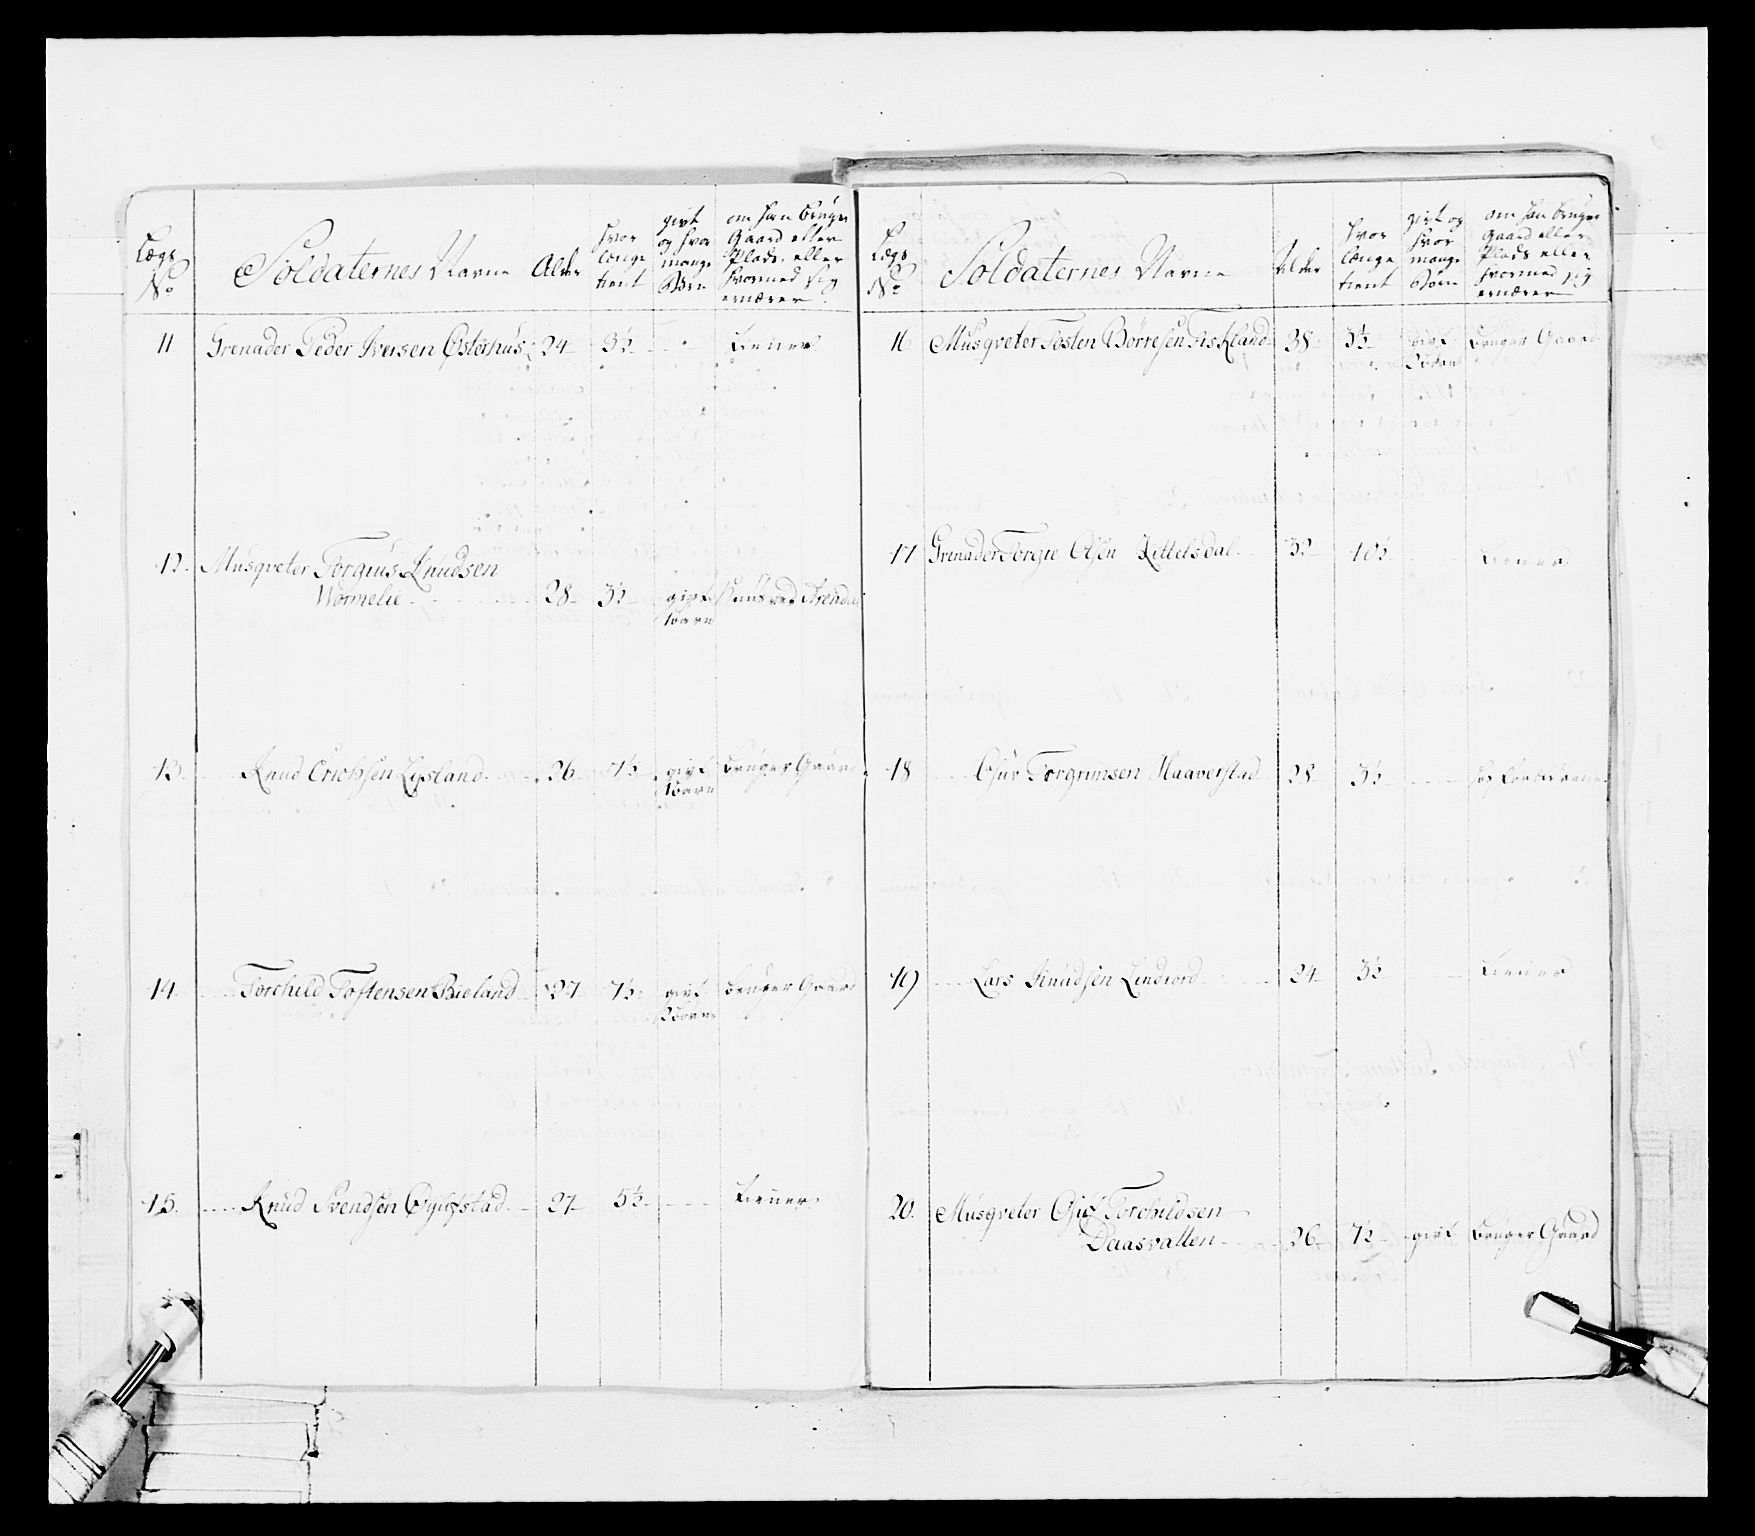 Lægs No
Soldaternes Navne
Alder
hvor længe tient
givt og hvor mange Børn
om han bruger Gaard eller Plads, eller hvormed sig ernærer
11 Grenader Peder Iversen Østerhus 24 3½ - tiener
12. Musqveter Torgius Knudsen
Wormelie 28 3½ givt Huus ved Arendal
1 barn
13 Knud Erichsen Lysland 26 7½ givt bruger Gaard
1 barn
14 Torchild Tostensen Bieland 27 7½ givt bruger Gaard
2 børn
15. Knud Svendsen 27 5½ tiener
Lægs No
Soldaternes Navne
Alder
hvor længe tient
givt og hvor mange Børn
om han bruger Gaard eller Plads eller hvormed sig ernærer
16 Musqveter Tosten Børresen Fiskland 38 3½ givt bruger Gaard
børn
17 Grenader Torgie Olsen Kittelsdal 32 10½ tiener
18 Osuv Torgrimsen Haaverstad 28 3½ hos Forældrene
19 Lars Knudsen Lindiord 24 3½ tiener
20. Musqveter Torchildsen
Daasvatten 26 7½ givt bruger Gaard